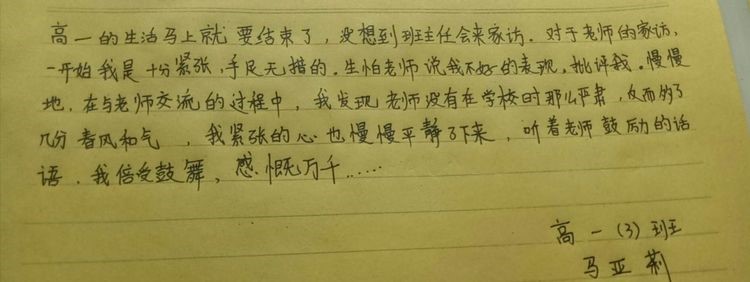 高一的生活马上就要结束了，没想到班主任会来家访。对于老师的家访，
一开始我是十分紧张，手足无措的。生怕老师说我不好的表现，批评我。慢慢
地，在与老师交流的过程中，我发现老师没有在学校时那么严肃，反而多了
几分春风和气，我紧张的心也慢慢平静了下来，听着老师鼓励的话
语，我倍受鼓舞，感慨万千……
高一（3）班
马亚莉